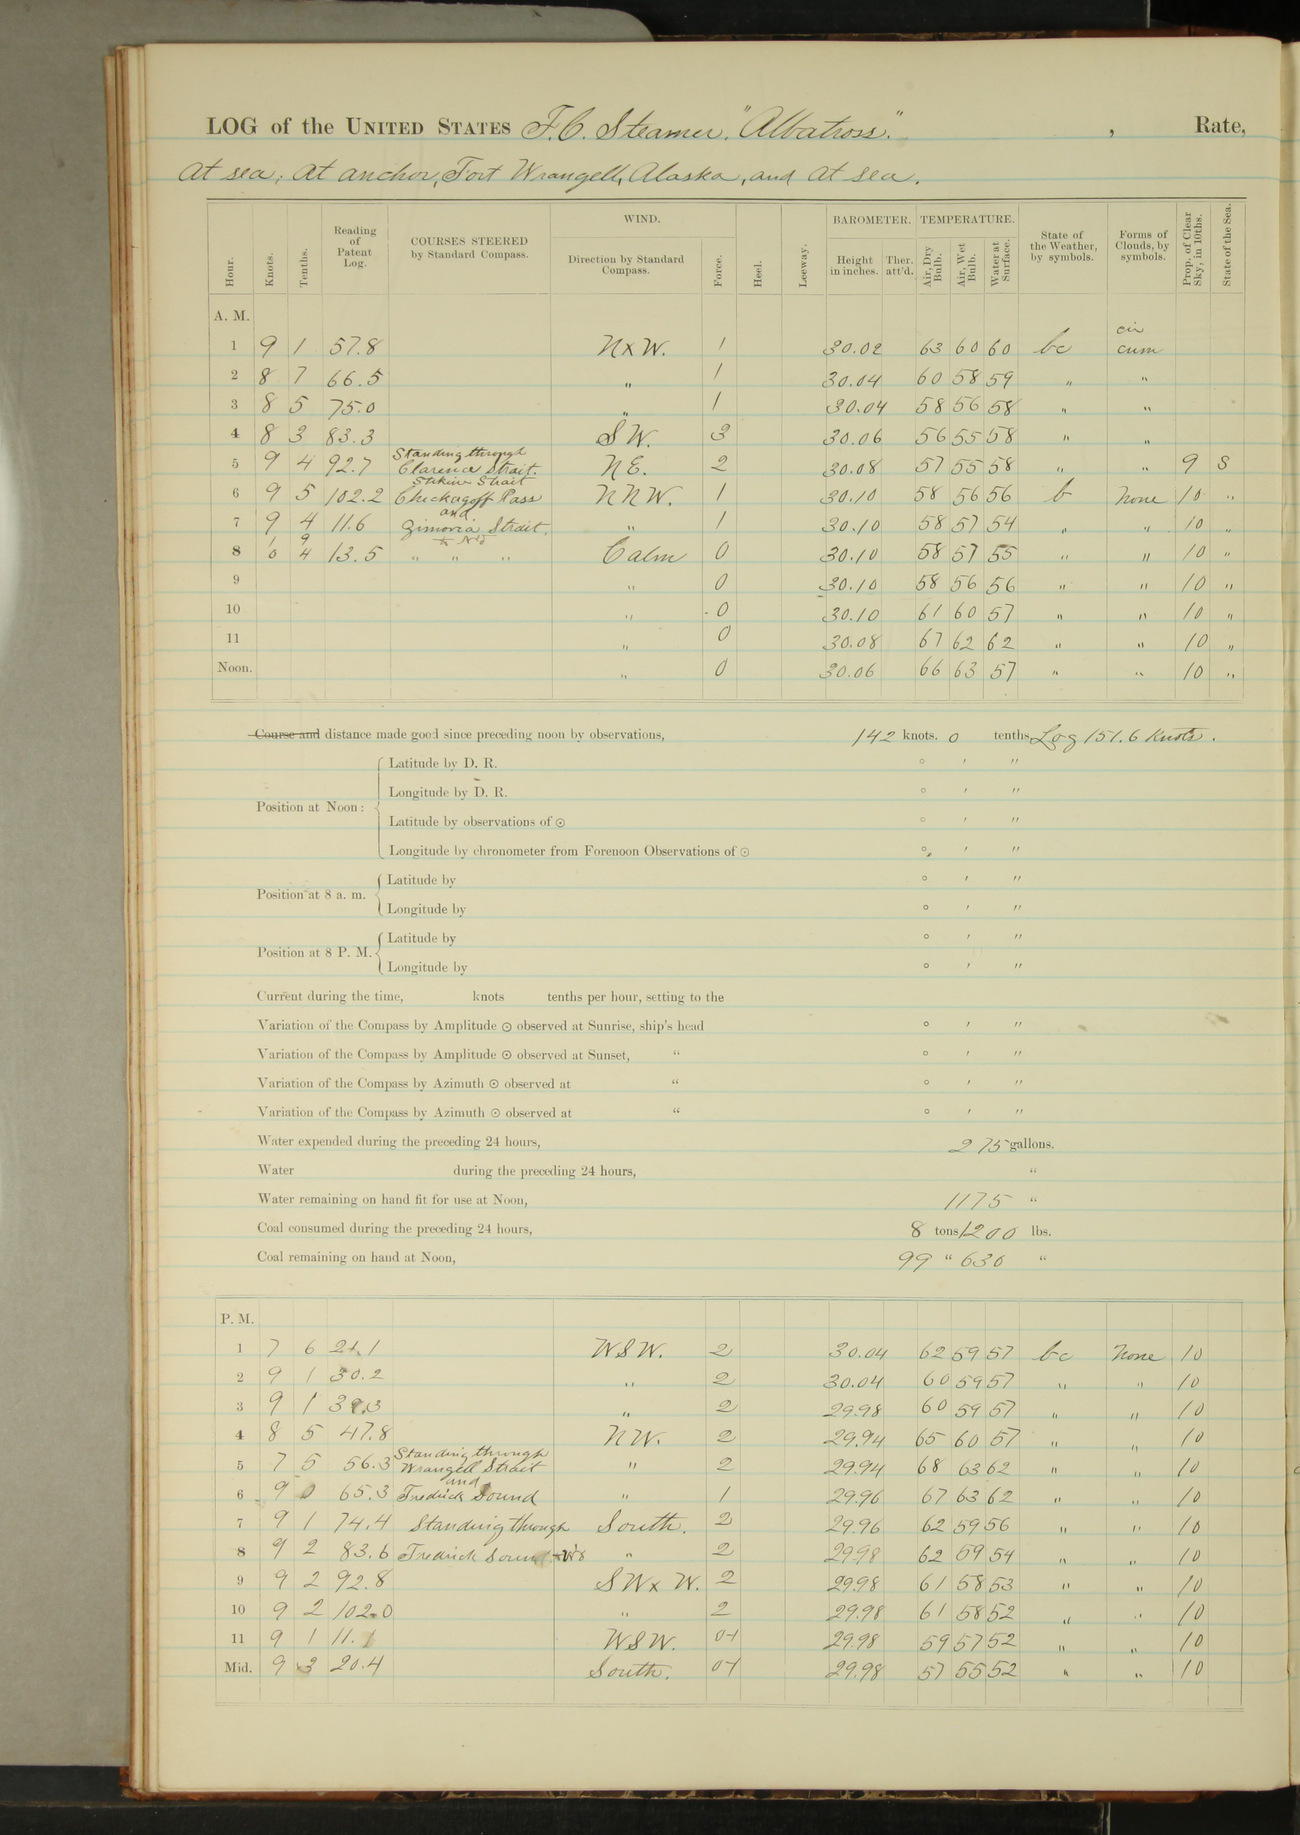 LOG of the UNITED STATES F.C. Steamer "Albatross." , Rate,
At sea; At anchor, Fort Wrangell, Alaska, and At sea.
Hour. Knots. Tenths. Reading of Patent Log. COURSES STEERED by Standard Compass. WIND. Direction by Standard Compass. Force. Heel. Leeway. BAROMETER. Height in inches. Ther. att'd. TEMPERATURE. Air, Dry Bulb. Air, Wet Bulb. Water at Surface. State of the Weather, by symbols. Forms of Clouds, by symbols. Prop. of Clear Sky, in 10ths. State of the Sea.
A. M.
1 9 1 57.8 N x W. 1 30.02 63 60 60 bc cir cum
2 8 7 66.5 " 1 30.04 60 58 59 " "
3 8 5 75.0 " 1 30.04 58 56 58 " "
4 8 3 83.3 SW. 3 30.06 56 55 58 " "
Standing through
5 9 4 92.7 Clarence Strait. NE. 2 30.08 57 55 58 " " 9 S
Stikine Strait
6 9 5 102.2 Chickagoff Pass NNW. 1 30.10 58 56 56 b None 10 "
and
7 9 4 11.6 Zimovia Strait. " 1 30.10 58 57 54 " " 10 "
8 1 0 9 4 13.5 " " " Calm 0 30.10 58 57 55 " " 10 "
9 " 0 30.10 58 56 56 " " 10 "
10 " 0 30.10 61 60 57 " " 10 "
11 " 0 30.08 67 62 62 " " 10 "
Noon. " 0 30.06 66 63 57 " " 10 "
Course and distance made good since preceding noon by observations, 142 knots. 0 tenths Log 151.6 Knots.
Position at Noon: Latitude by D. R. ° ′ ″
Longitude by D. R. ° ′ ″
Latitude by observations of ⊙ ° ′ ″
Longitude by chronometer from Forenoon Observations of ⊙ ° ′ ″
Position at 8 a. m. Latitude by ° ′ ″
Longitude by ° ′ ″
Position at 8 P. M. Latitude by ° ′ ″
Longitude by ° ′ ″
Current during the time, knots tenths per hour, setting to the
Variation of the Compass by Amplitude ⊙ observed at Sunrise, ship's head ° ′ ″
Variation of the Compass by Amplitude ⊙ observed at Sunset, " ° ′ ″
Variation of the Compass by Azimuth ⊙ observed at " ° ′ ″
Variation of the Compass by Azimuth ⊙ observed at " ° ′ ″
Water expended during the preceding 24 hours, 275 gallons.
Water during the preceding 24 hours, "
Water remaining on hand fit for use at Noon, 1175 "
Coal consumed during the preceding 24 hours, 8 tons 1200 lbs.
Coal remaining on hand at Noon, 99 " 630 "
P. M.
1 7 6 21.1 WSW. 2 30.04 62 59 57 bc None 10
2 9 1 30.2 " 2 30.04 60 59 57 " " 10
3 9 1 39.3 " 2 29.98 60 59 57 " " 10
4 8 5 47.8 NW. 2 29.94 65 60 57 " " 10
Standing through
5 7 5 56.3 Wrangell Strait " 2 29.94 68 63 62 " " 10
and
6 9 0 65.3 Fredrick Sound " 1 29.96 67 63 62 " " 10
7 9 1 74.4 Standing through South. 2 29.96 62 59 56 " " 10
8 9 2 83.6 Fredrick Sound " 2 29.98 62 59 54 " " 10
9 9 2 92.8 SW x W. 2 29.98 61 58 53 " " 10
10 9 2 102.0 " 2 29.98 61 58 52 " " 10
11 9 1 11.1 WSW. 0-1 29.98 59 57 52 " " 10
Mid. 9 3 20.4 South. 0-1 29.98 57 55 52 " " 10